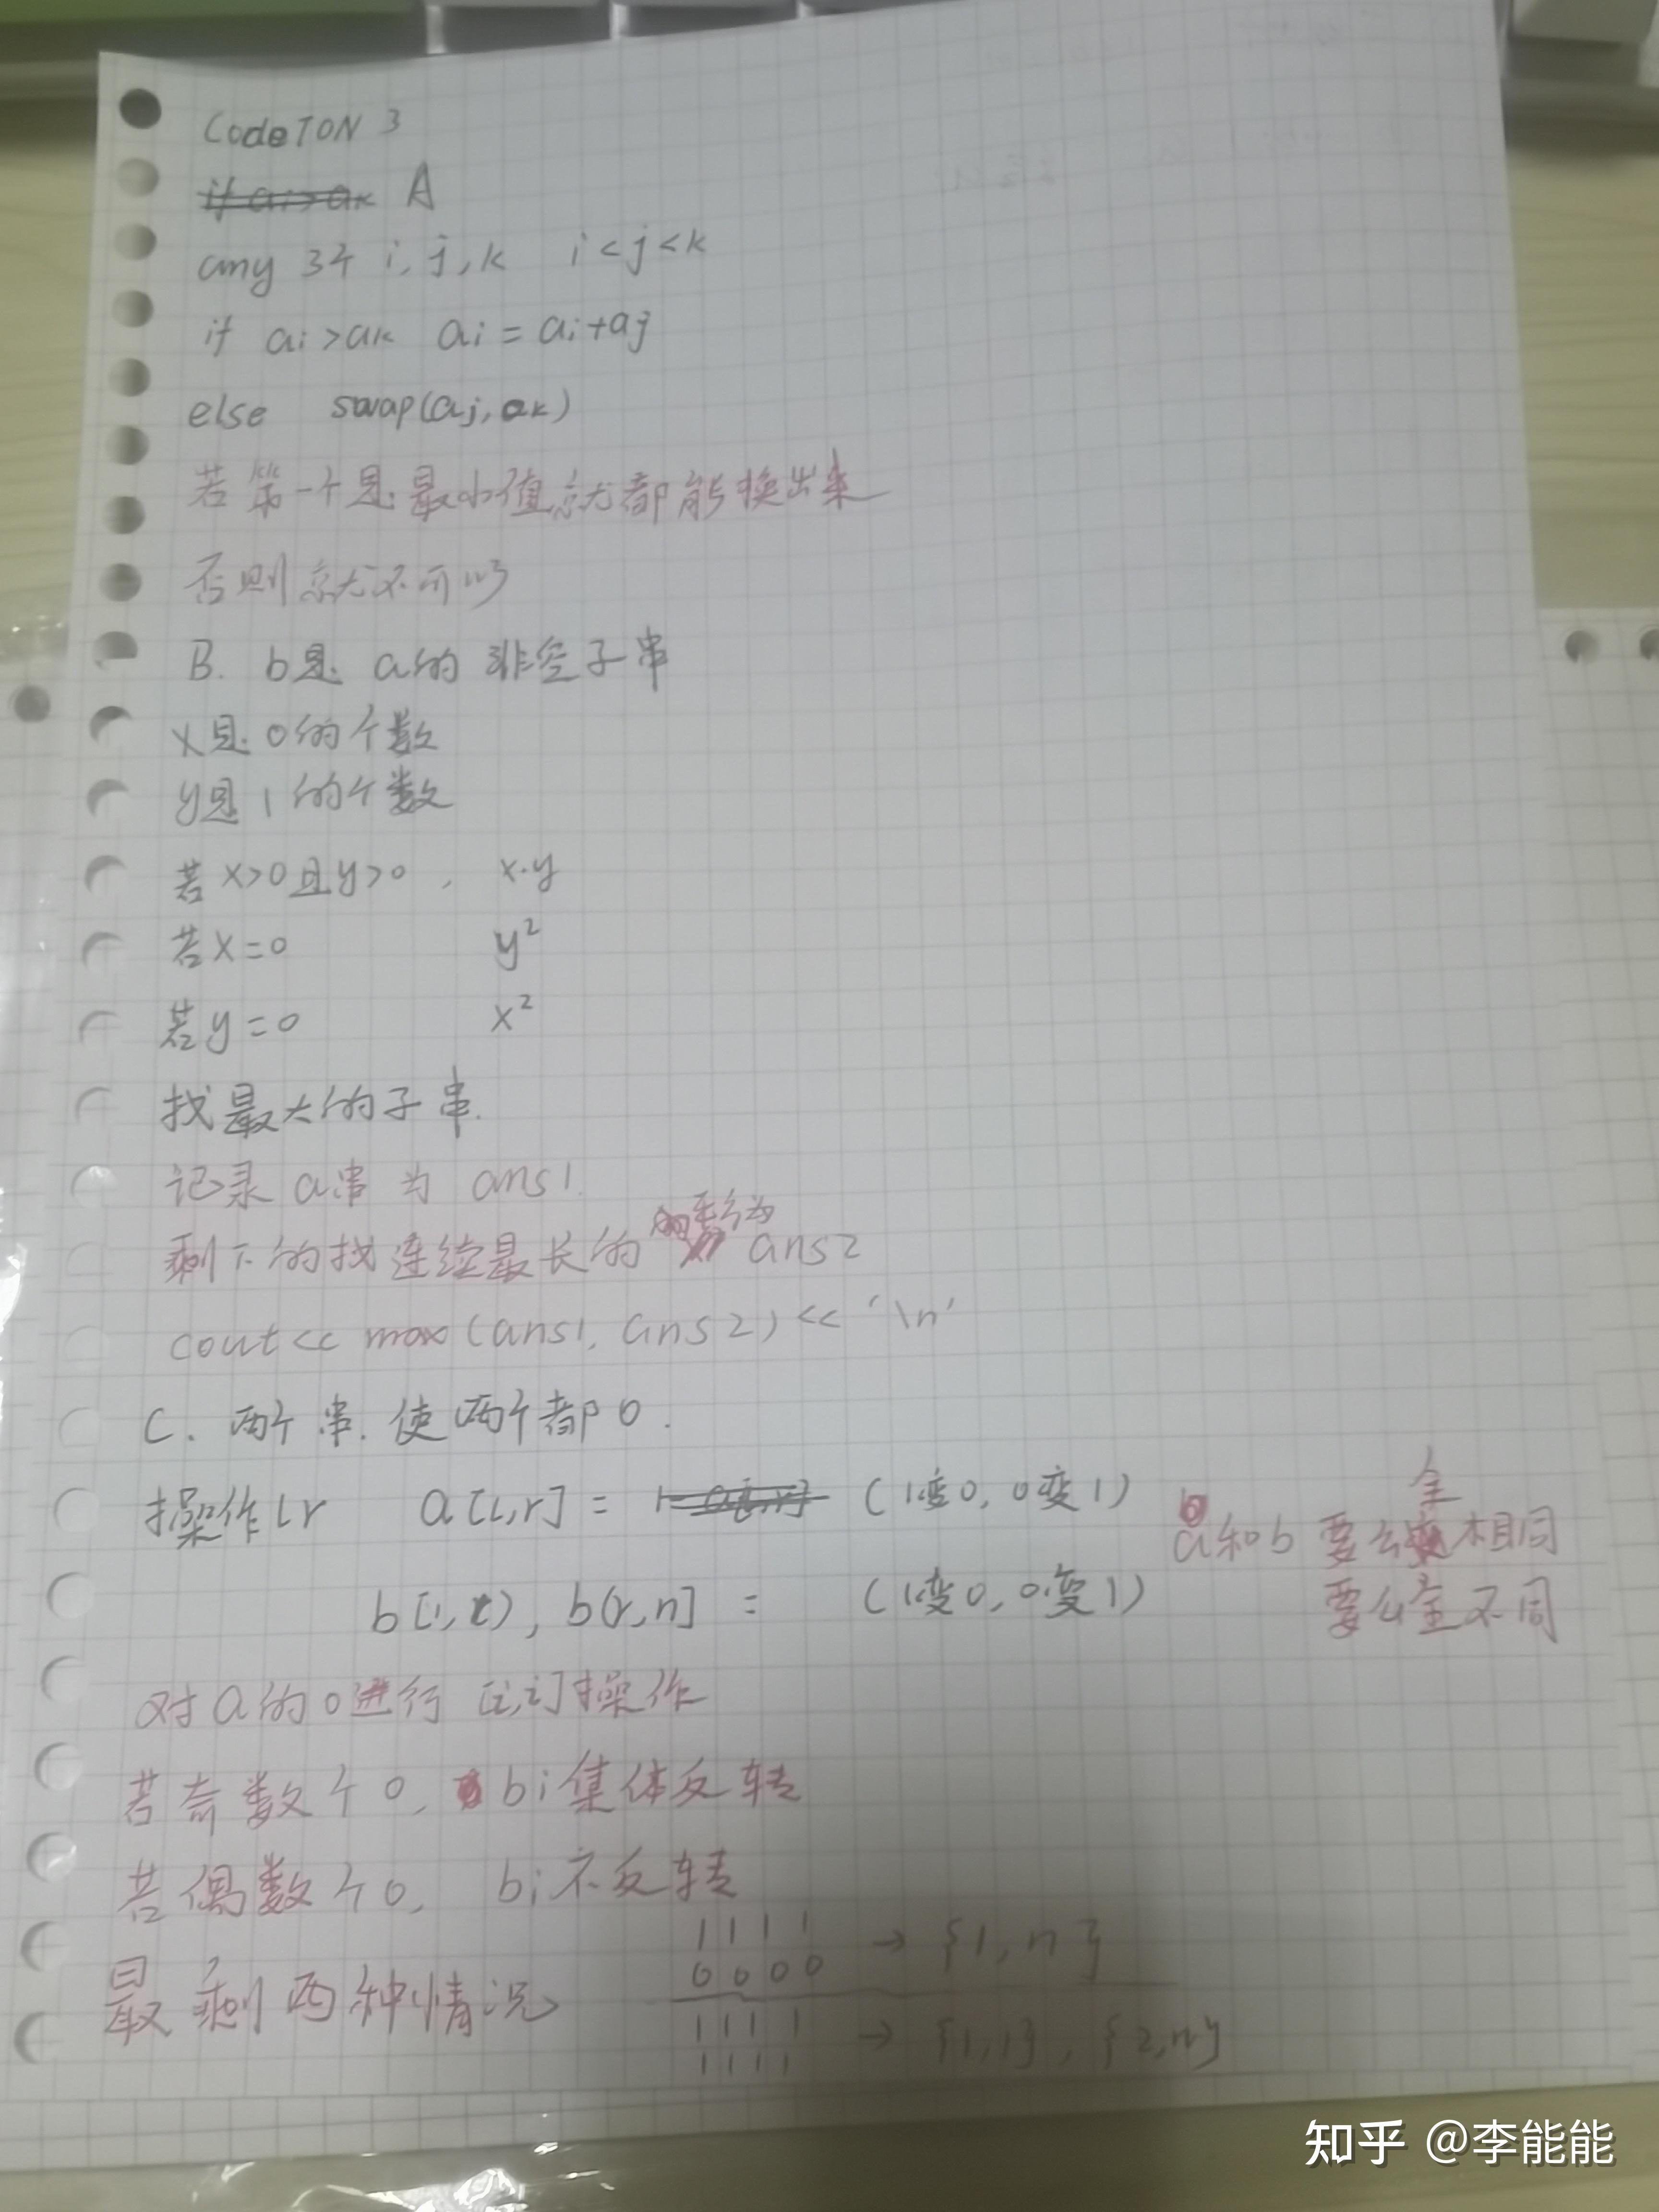 CodeTON 3
if ai>ak A
any 3个 i, j, k i<j<k
if ai>ak ai = ai+aj
else swap(aj, ak)
若第一个是最小值就都能换出来
否则就不可以
B. b是 a的 非空子串
x是 0的个数
y是 1的个数
若 x>0且y>0 , x·y
若x=0 y²
若y=0 x²
找最大的子串.
记录 a串 为 ans1.
剩下的找连续最长的 ans2
cout<< max(ans1, ans2) << '\n'
C. 两个串. 使两个都 0.
操作 l r a[l,r] = (1变0, 0变1)
b[1,l), b(r,n] = (1变0, 0变1)
a和b 要么全相同
要么全不同
对a的0进行 [i,i]操作
若奇数个0, bi集体反转
若偶数个0, bi不反转
最 剩两种情况
1 1 1 1
0 0 0 0 → {1, n}
1 1 1 1
1 1 1 1 → {1,1}, {2,n}
知乎 @李能能